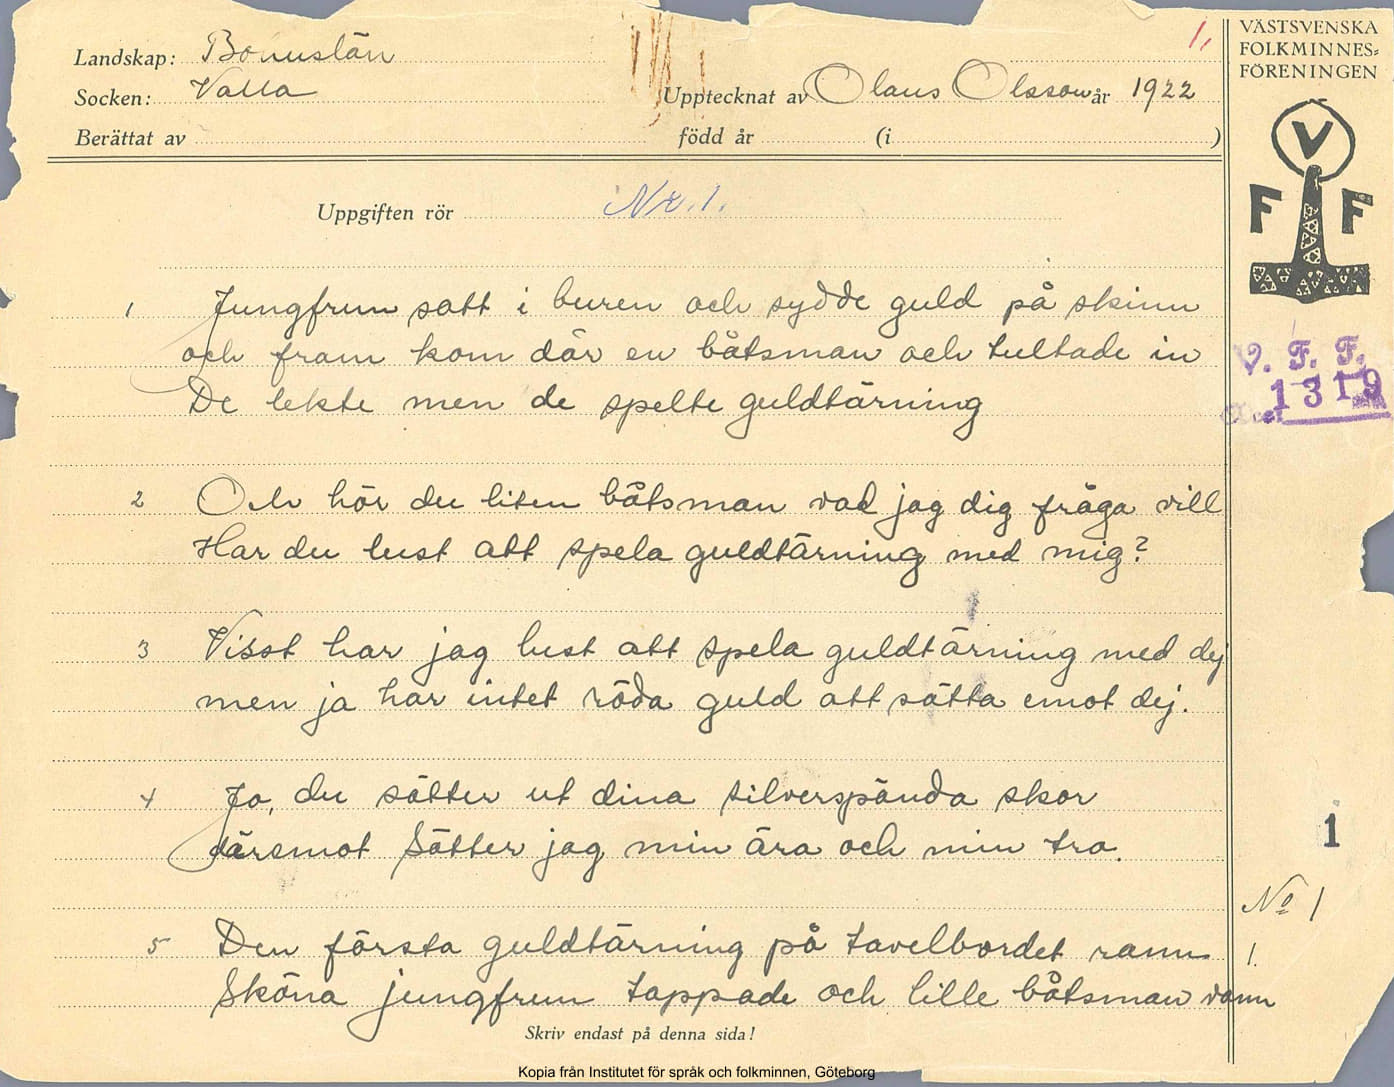 Landskap: Bohuslän
Socken: Valla
Berättat av
Upptecknat av Olaus Olsson år 1922
född år (i )
1,
VÄSTSVENSKA
FOLKMINNES=
FÖRENINGEN
V
F F
V. F. F.
1319
Uppgiften rör Nr. 1.
1 Jungfrun satt i buren och sydde guld på skinn
och fram kom där en båtsman och tultade in
De lekte men de spelte guldtärning
2 Och hör du liten båtsman vad jag dig fråga vill
Har du lust att spela guldtärning med mig?
3 Visst har jag lust att spela guldtärning med dej
men ja har intet röda guld att sätta emot dej.
4 Jo, du sätter ut dina silverspända skor
däremot sätter jag min ära och min tro.
1
No 1
5 Den första guldtärning på tavelbordet rann 1.
Sköna jungfrun tappade och lille båtsman vann
Skriv endast på denna sida!
Kopia från Institutet för språk och folkminnen, Göteborg